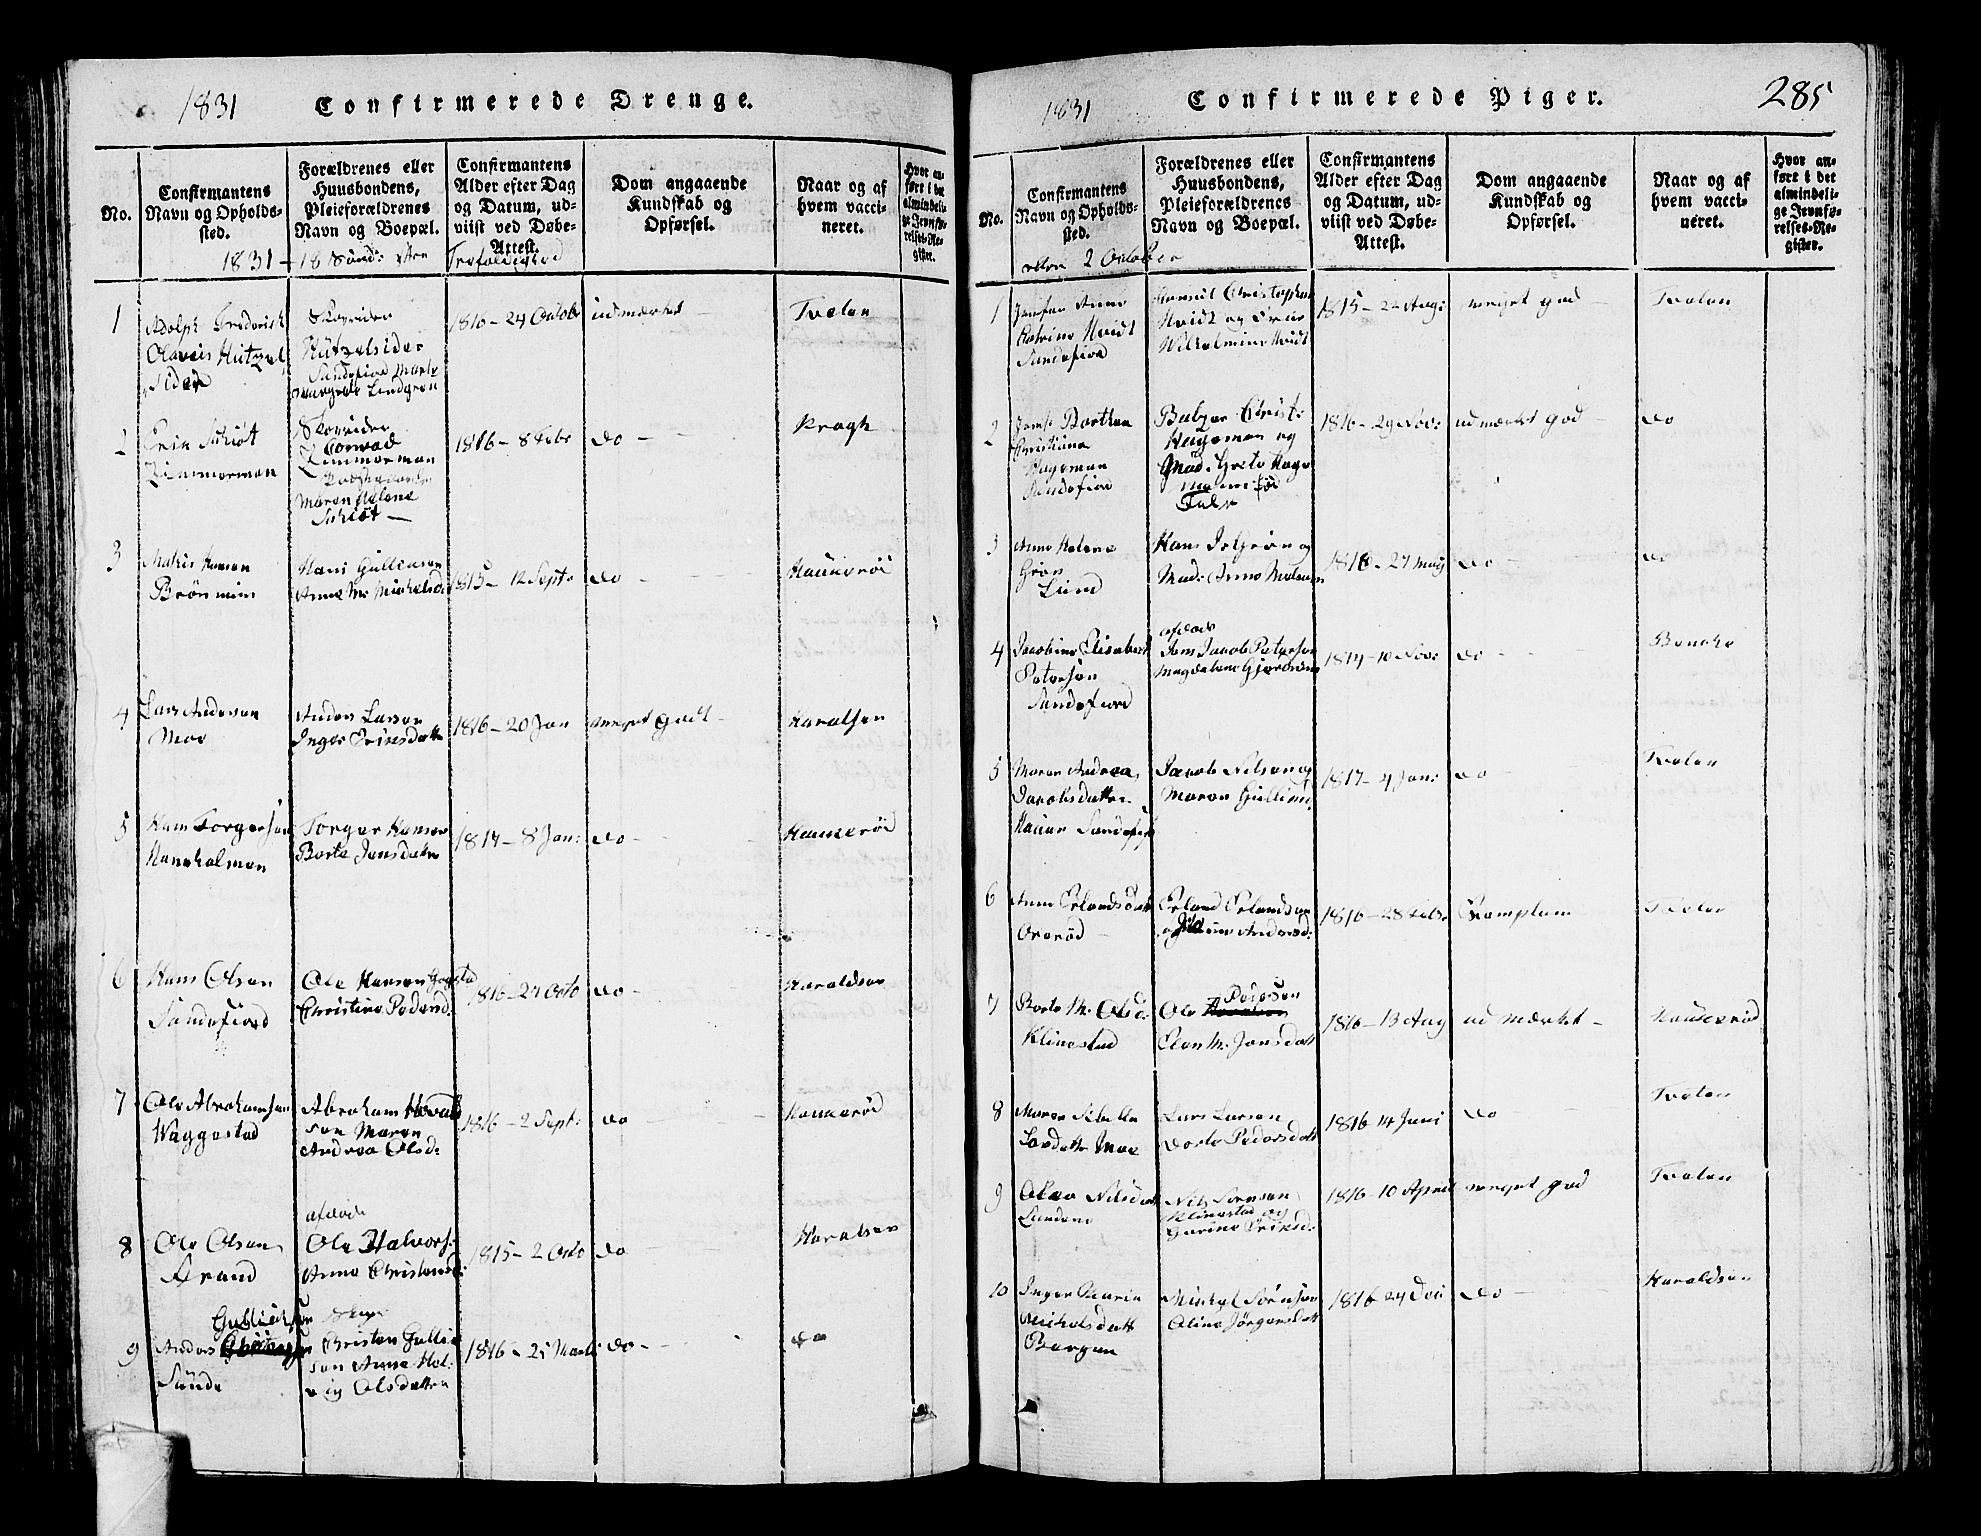 1831 Confirmerede Drenge.
No.
Confirmantens
Navn og Opholds-
sted.
Forældrenes eller
Huusbondens,
Pleieforældrenes
Navn og Boepæl.
Confirmantens
Alder efter Dag
og Datum, ud-
viist ved Døbe-
Attest.
Dom angaaende
Kundskab og
Opførsel.
Naar og af
hvem vacci-
neret.
Hvor an-
ført i det
almindeli-
ge Jevnfø-
relses-Re-
gister.
1831 - 18 Sønd: efter Trefoldighed
1
Adolph Frederich
Olaus Hützel
sider
Skovrider
Hützelsider
Sandefiord
Margrete Lindgren
1816 - 24 Octobr
udmærket
Tveten
2
Erik Schiøt
Zimmerman
Skovrider
Conrad
Zimmerman
Maren Helene
Schiøt -
1816 - 8 Febr
do -
Kragh
3
Mathis Hansen
Hans Gulliksen
Anne M: Michelsd:
1815 - 12 Septr
do -
Haukerøi
4
Lars Andersen
Moe
Anders Larsen
Inger Eriksdatter
1816 - 20 Jan
meget godt -
Haralsen
5
Hans Torgersen
Haneholmen
Torger Hansen
Berte Jensdatter
1817 - 8 Jan:
do -
Haukerød
6
Hans Olsen
Sandefiord
Ole Hansen Gogstad
Christine Pedersd:
1816 - 24 Octo
do -
Haraldsen
7
Ole Abrahamsen
Waggestad
Abraham Hovald
sen Maren
Andrea Olsd:
1816 - 2 Septr:
do
Haukerød
8
Ole Olsen
Strand
afdøde
Ole Halvors:
Anne Christensd:
1815 - 2 Octo
do -
Haralsen
9
Gullichsen
Anders
Sünde
Christen Gullic
sen Anne Hel-
vig Olsdatter
1816 - 25 Marti
do -
do
1831 Confirmerede Piger. 285
No.
Confirmantens
Navn og Opholds-
sted.
Forældrenes eller
Huusbondens,
Pleieforældrenes
Navn og Boepæl.
Confirmantens
Alder efter Dag
og Datum, ud-
viist ved Døbe-
Attest.
Dom angaaende
Kundskab og
Opførsel.
Naar og af
hvem vacci-
neret.
Hvor an-
ført i det
almindeli-
ge Jevnfø-
relses-Re-
gister.
den 2 October
1
Jomfru Anne
Katrine Hvidt
Sandefiord
Christopher
Hvidt og Frue
Wilhelmine Hvidt
1815 - 22 Aug:
meget god -
Tveten
2
Jomfr Dorthea
Christiane
Hageman
Sandefiord
Christ:
Hageman og
Mad: Grete Hage
man fød
Falk
1816 - 29 Nov:
udmærket god -
do
3
Anne Helene
Grøn
Lund
Hans Grøn og
Mad: Anne Madsen
1816 - 27 May
do -
do
4
Jacobine Elisabeth
Petersen
Sandefiord
afdøde
Jens Jacob Petersen
Magdalene
1814 - 10 Nov:
do -
Bencke
5
Maren Andrea
Jacobsdatter
Hauan Sandefiord
Jacob Nilsen og
Maren Gulliksd:
1817 - 4 Jan:
do -
Tveten
6
Anne Erlandsdatt
Ormerød
Erland Erlandsen
og Andersd:
1816 - 28 Febr
Exemplum
Tveten
7
Berte M. Olsd:
Klinestad
Ole Pedersen
Elen M. Jensdatt
1816 - 13 Aug
udmærket -
Haukerød
8
Maren Sibella
Larsdatter Moe
Lars Larsen
Dorte Pedersdatt
1816 14 Juni
do
Tveten
9
Olea Nilsdatt
Lunden
Nils Sørensen
Klinestad og
Gurine Eriksd:
1816 - 10 April
meget god
Tveten
10
Inger Maria
Michelsdatt
Bergan
Michel Sörensen
Oline Jörgensdatt
1816 24 Dec
do -
Haraldsen